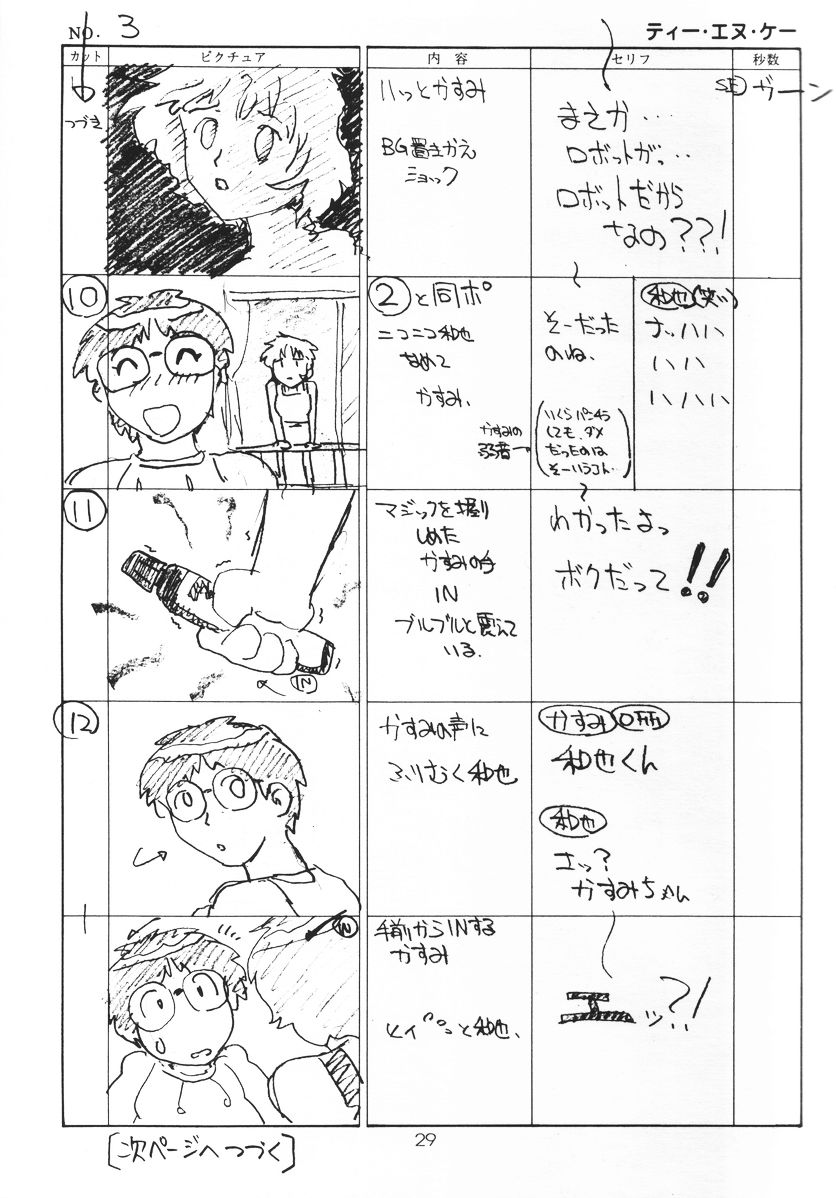 NO. 3
ティー・エヌ・ケー
カット
ピクチュア
内容
セリフ
秒数
つづき
ハッとかすみ
BG置きかえ
ショック
まさか・・・
ロボットが・・・
ロボットだから
なの??!
SE ガーン
10
②と同ポ
ニコニコ和也
なめて
かすみ、
そーだった
のね、
かすみの
(いくらパンチラ
しても、ダメ
だったのは
そーいうコト‥)
和也(笑い)
ハハハ
ハハ
ハハハハ
11
マジックを握り
しめた
かすみの手
IN
ブルブルと震えて
いる.
IN
わかったよっ
ボクだって!!
12
かすみの声に
ふりむく和也
かすみ
和也くん
和也
えッ?
かすみちゃん
IN
手前からINする
かすみ
と和也、
エッ?!
[次ページへつづく]
29